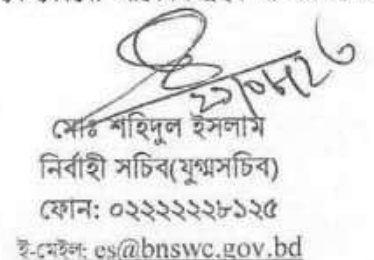 মোঃ শহিদুল ইসলাম
নির্বাহী সচিব(যুগ্মসচিব)
ফোন: ০২২২২২২৮১২৫
ই-মেইল: es@bnswc.gov.bd